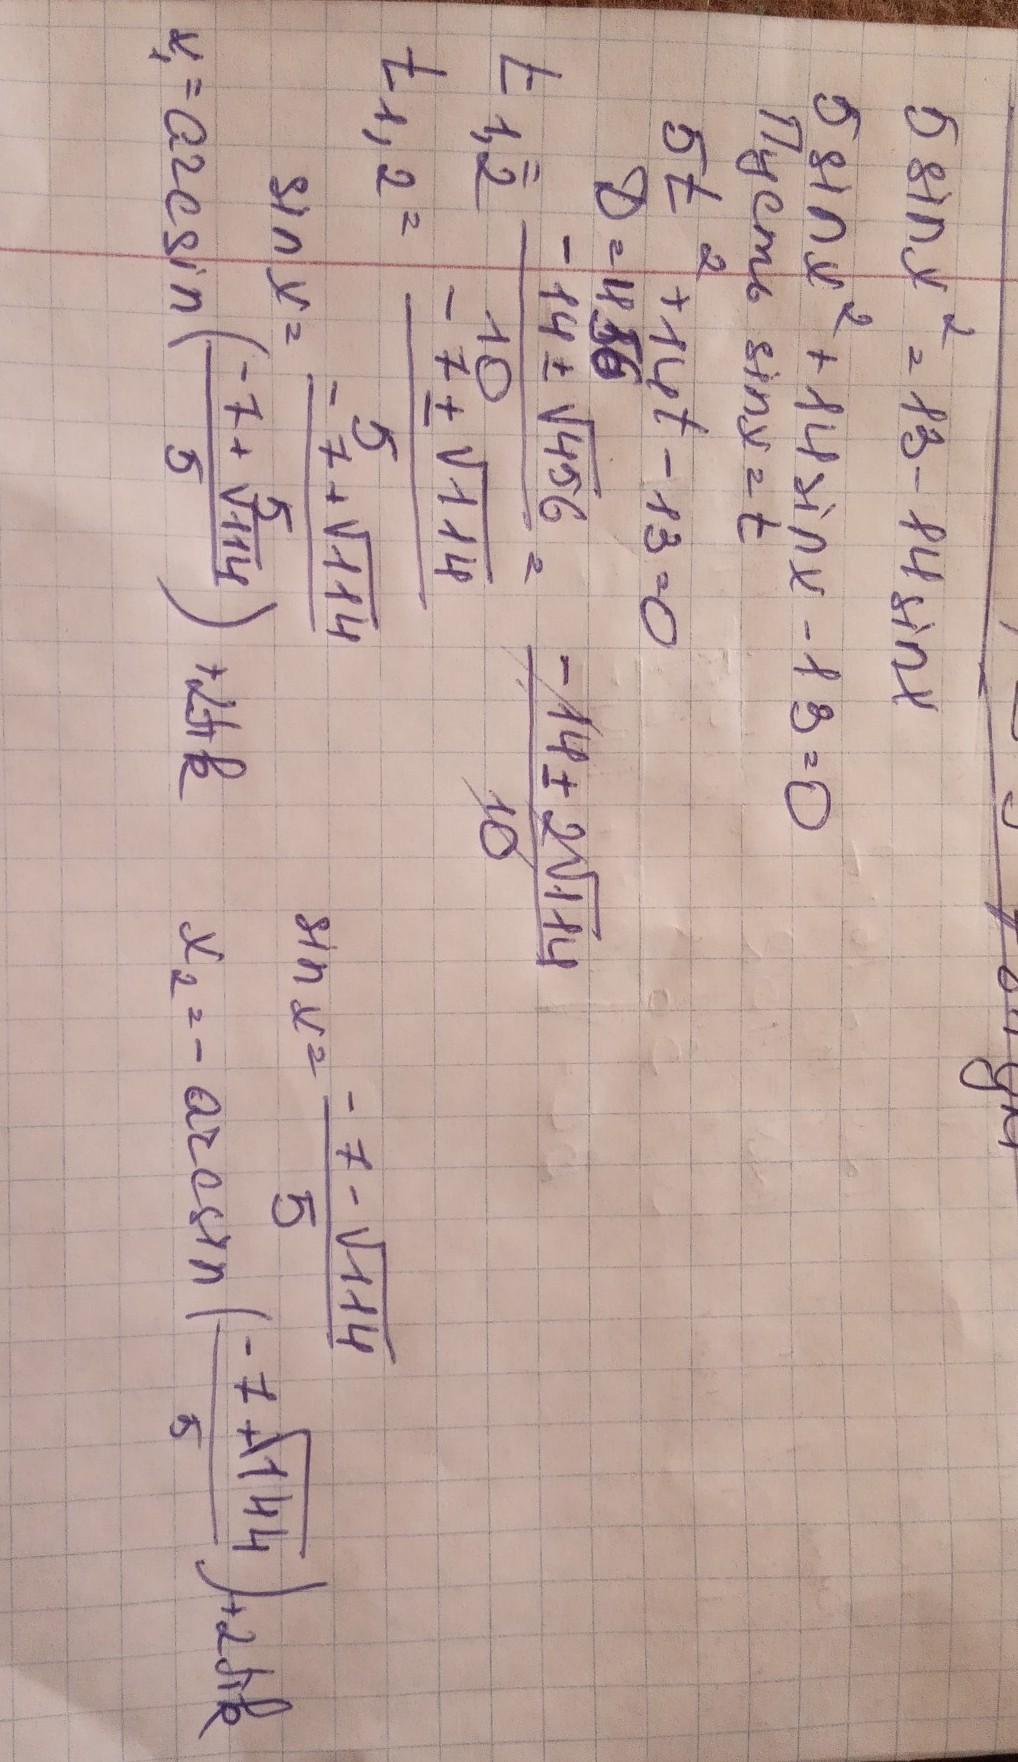 5 sinx² = 13 - 14 sinx
5 sinx² + 14 sinx - 13 = 0
Пусть sinx = t
5t² + 14t - 13 = 0
D = 456
t1,2 = (-14 ± √456)/10 = (-14 ± 2√114)/10
t1,2 = (-7 ± √114)/5
sinx = (-7 + √114)/5 sinx = (-7 - √114)/5
x₁ = arcsin((-7 + √114)/5) + 2πk x₂ = - arcsin((-7 + √144)/5) + 2πk